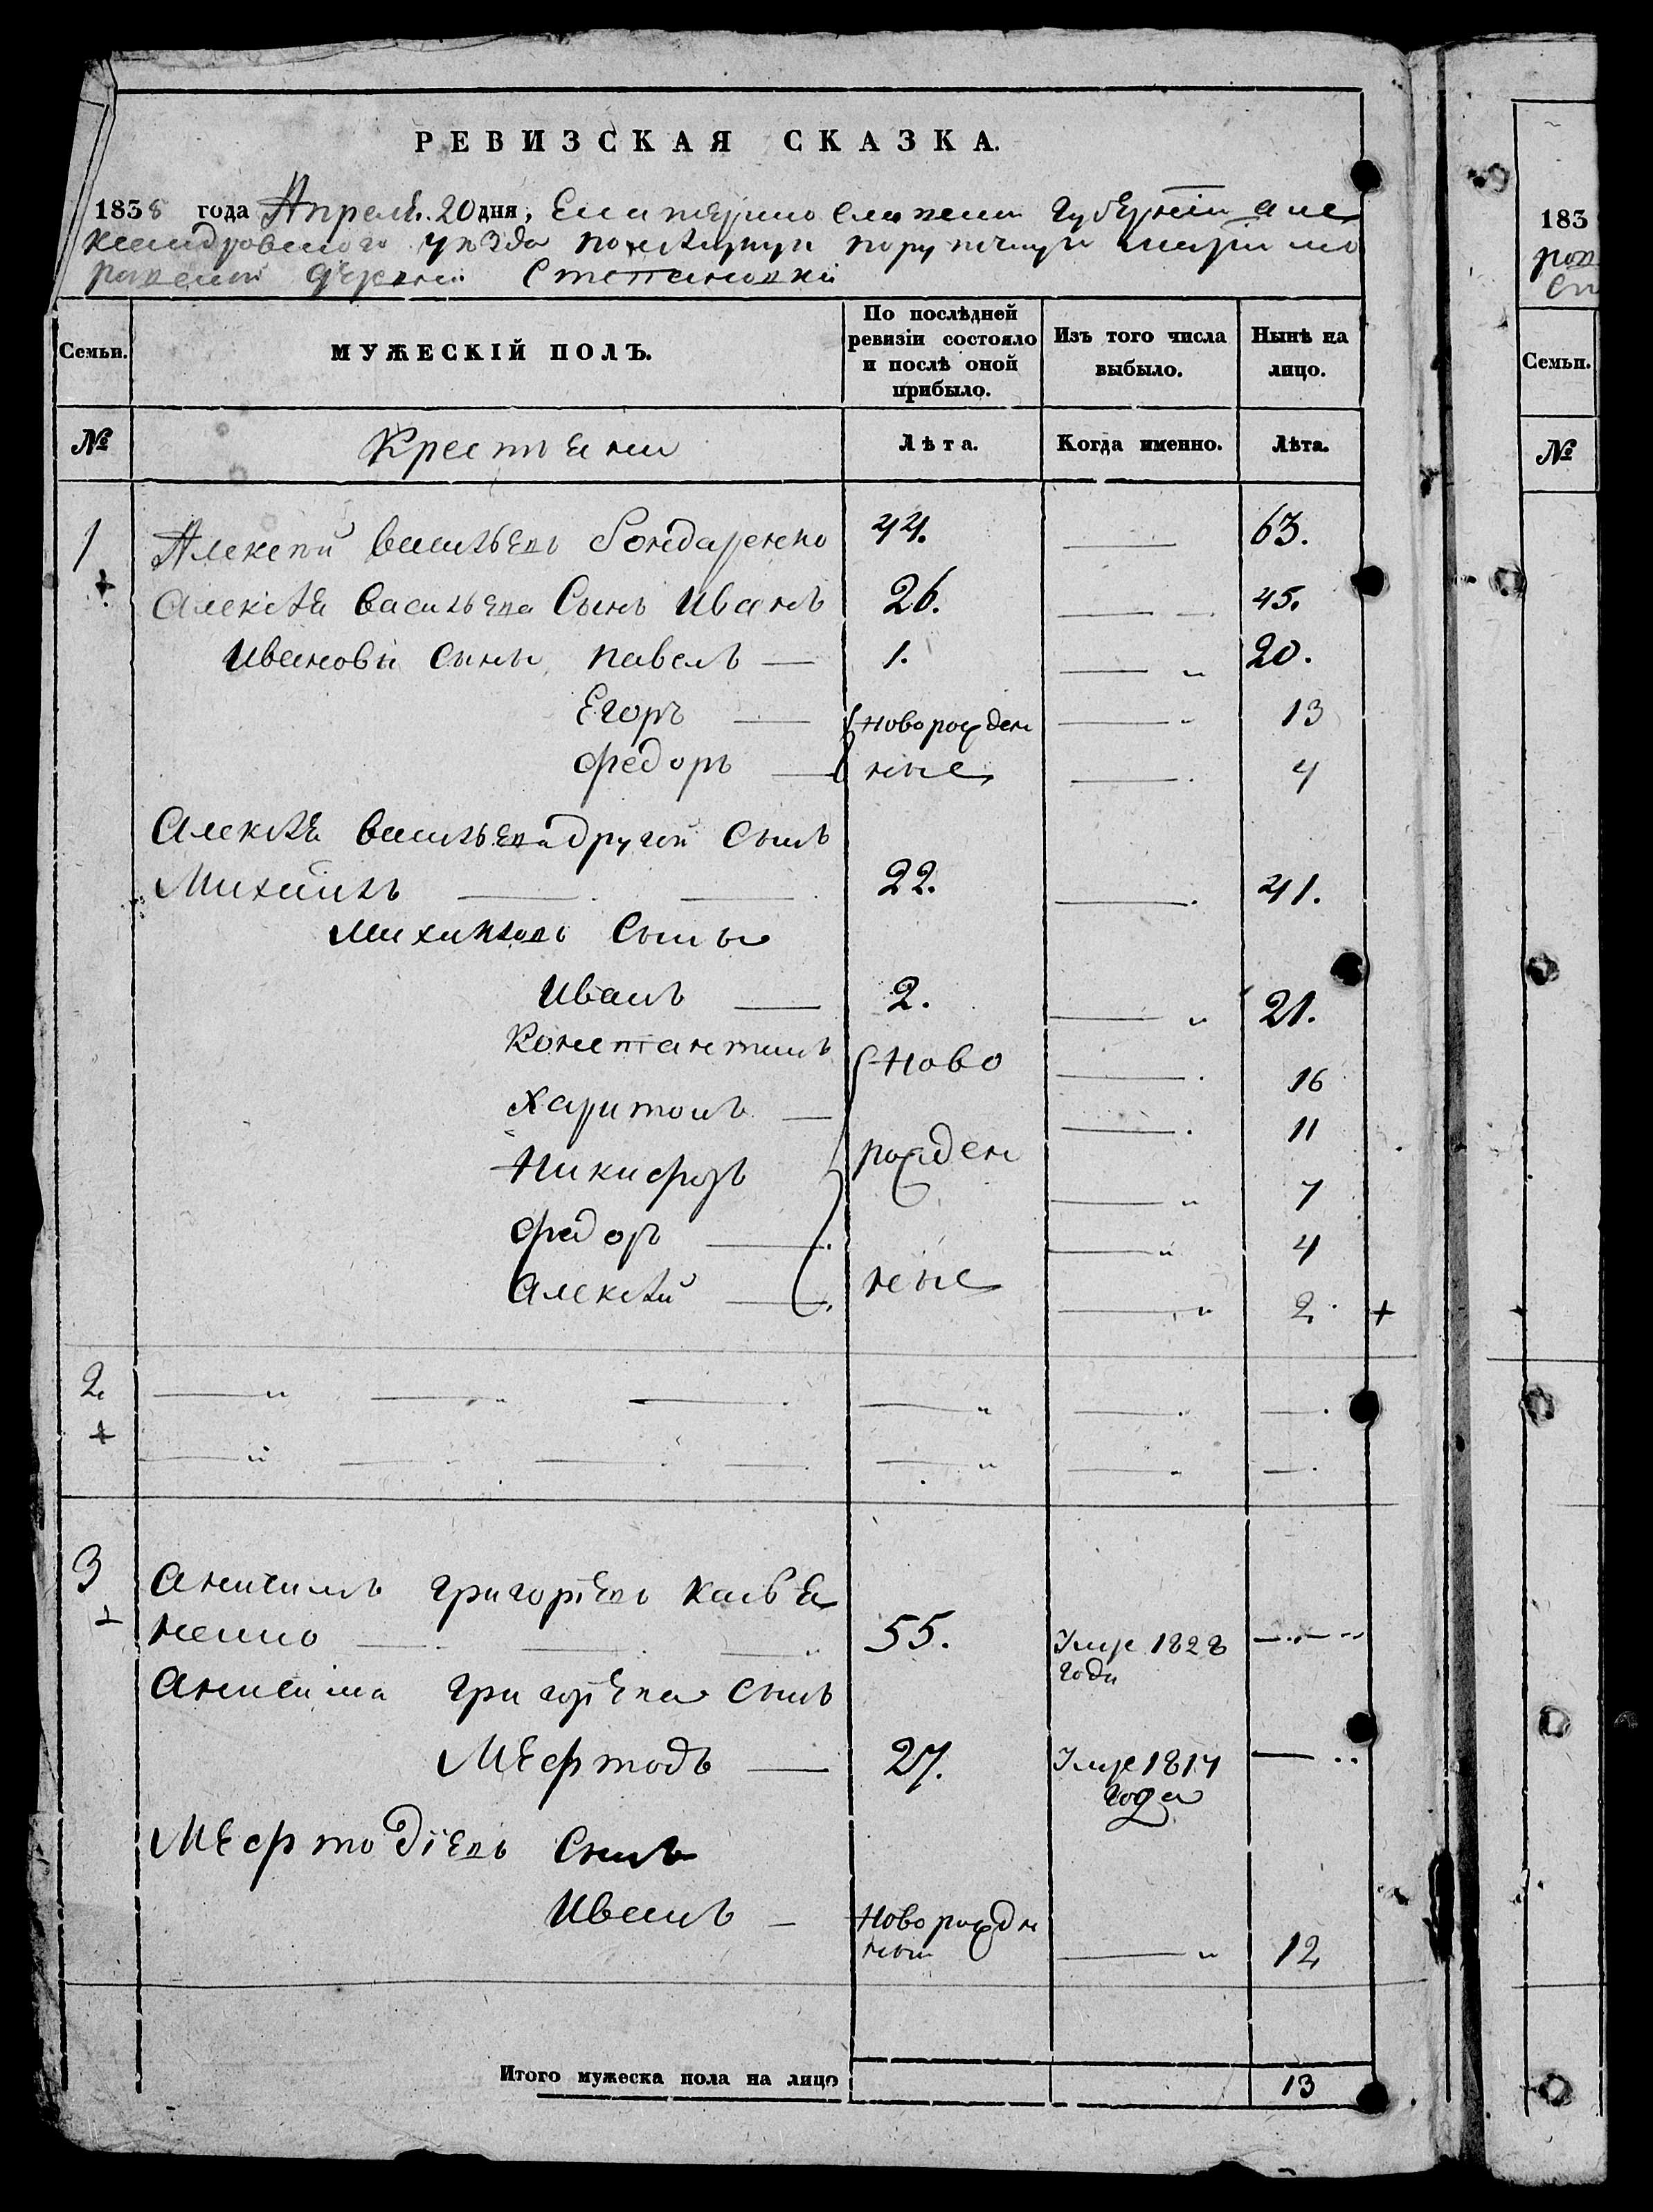 РЕВИЗСКАЯ СКАЗКА.
1835 года Апреля 20 дня, Екатеринославской Губернiи Але
ксандровского уезда помещицы порутчицы Марiи
деревни Степановки
Семьи. МУЖЕСКIЙ ПОЛЪ. По послѣдней ревизiи состояло и послѣ оной прибыло. Изъ того числа выбыло. Нынѣ на лицо.
№ Крестьяни Лѣта. Когда именно. Лѣта.
1 Алексѣй васильевъ бондаренко 44. 63.
Алексѣя васильева Сынъ Иванъ 26. 45.
Ивановы сыны павелъ 1. 20.
Егоръ новорожден 13
Федоръ ные 4
Алексѣя васильева другой Сынъ
Михаилъ 22. 41.
Михаиловы Сыны
Иванъ 2. 21.
Константинъ Ново 16
Харитонъ 11
Никифоръ рожден 7
Федоръ 4
Алексѣй ные 2
2
3 Анисимъ григорiевъ
ненко 55. Умре 1828
года
Анисима григорiева Сынъ
Мефтодъ 27. Умре 1817
года
Мефтодiевъ Сынъ
Иванъ Новорожден
ный 12
Итого мужеска пола на лицо 13
183
Семьи.
№